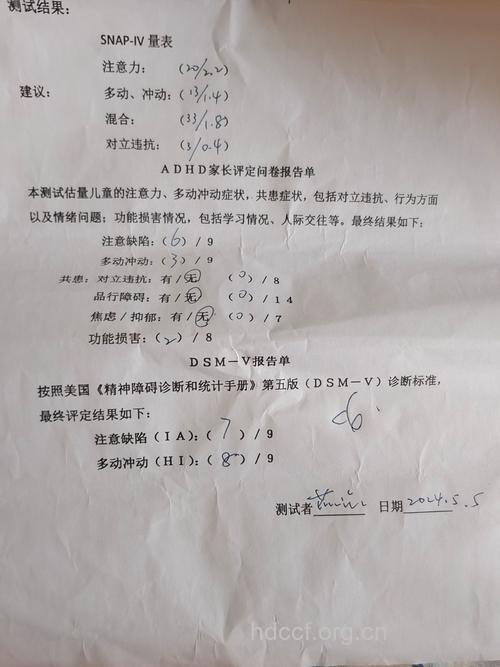 测试结果：
SNAP-IV 量表
注意力： (20/2.2)
建议： 多动、冲动：(13/1.4)
混合： (33/1.8)
对立违抗：(3/0.4)
ADHD家长评定问卷报告单
本测试估量儿童的注意力、多动冲动症状，共患症状，包括对立违抗、行为方面
以及情绪问题；功能损害情况，包括学习情况、人际交往等。最终结果如下：
注意缺陷：(6)/9
多动冲动：(3)/9
共患：对立违抗：有/无 (0)/8
品行障碍：有/无 (0)/14
焦虑/抑郁：有/无 (0)/7
功能损害：(2)/8
DSM-V报告单
按照美国《精神障碍诊断和统计手册》第五版（DSM-V）诊断标准，
最终评定结果如下：
注意缺陷（IA）：(7)/9
多动冲动（HI）：(8)/9
测试者 日期2024.5.5
hdccf.org.cn